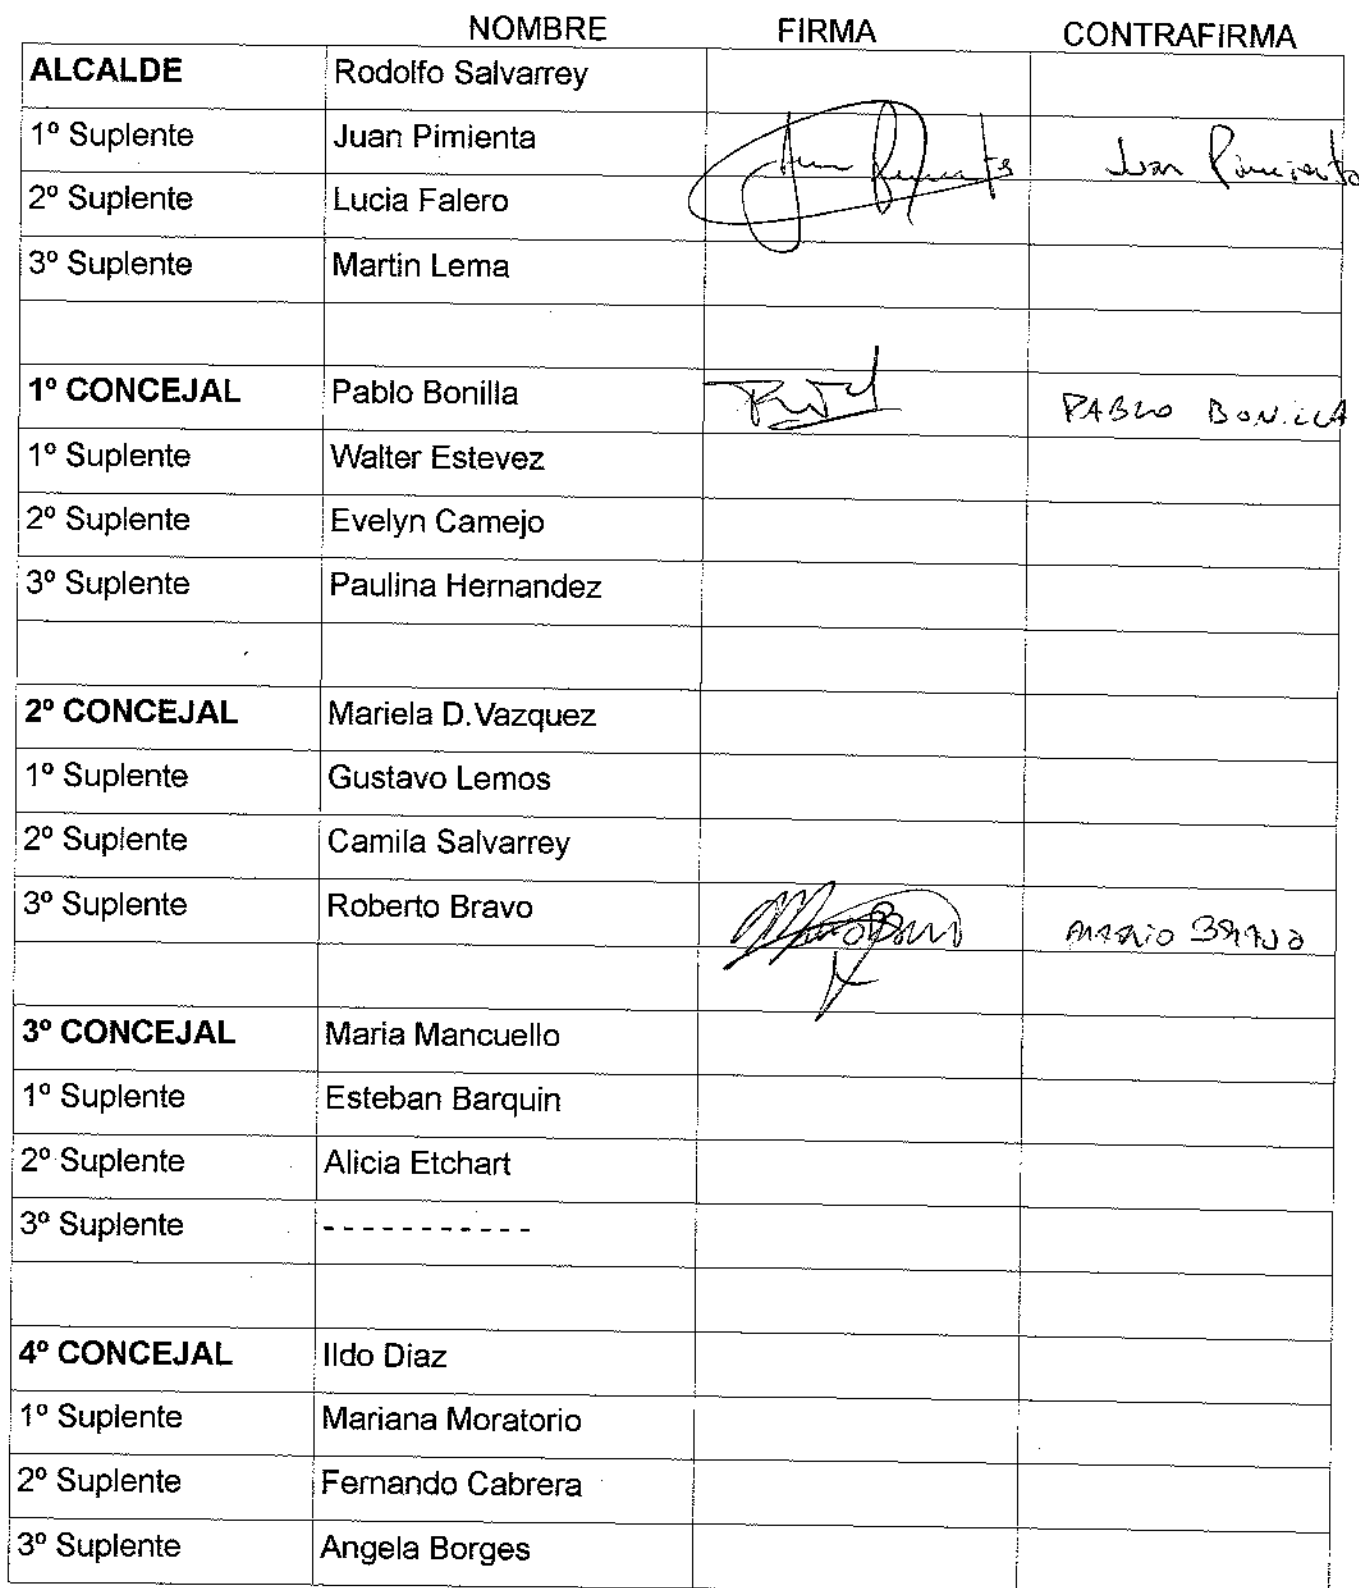 NOMBRE FIRMA CONTRAFIRMA
ALCALDE Rodolfo Salvarrey
1º Suplente Juan Pimienta Juan Pimienta Juan Pimienta
2º Suplente Lucia Falero
3º Suplente Martin Lema
1º CONCEJAL Pablo Bonilla PABLO BONILLA
1º Suplente Walter Estevez
2º Suplente Evelyn Camejo
3º Suplente Paulina Hernandez
2º CONCEJAL Mariela D.Vazquez
1º Suplente Gustavo Lemos
2º Suplente Camila Salvarrey
3º Suplente Roberto Bravo MARIO BRAVO
3º CONCEJAL Maria Mancuello
1º Suplente Esteban Barquin
2º Suplente Alicia Etchart
3º Suplente - - - - - - - - - - -
4º CONCEJAL Ildo Diaz
1º Suplente Mariana Moratorio
2º Suplente Fernando Cabrera
3º Suplente Angela Borges